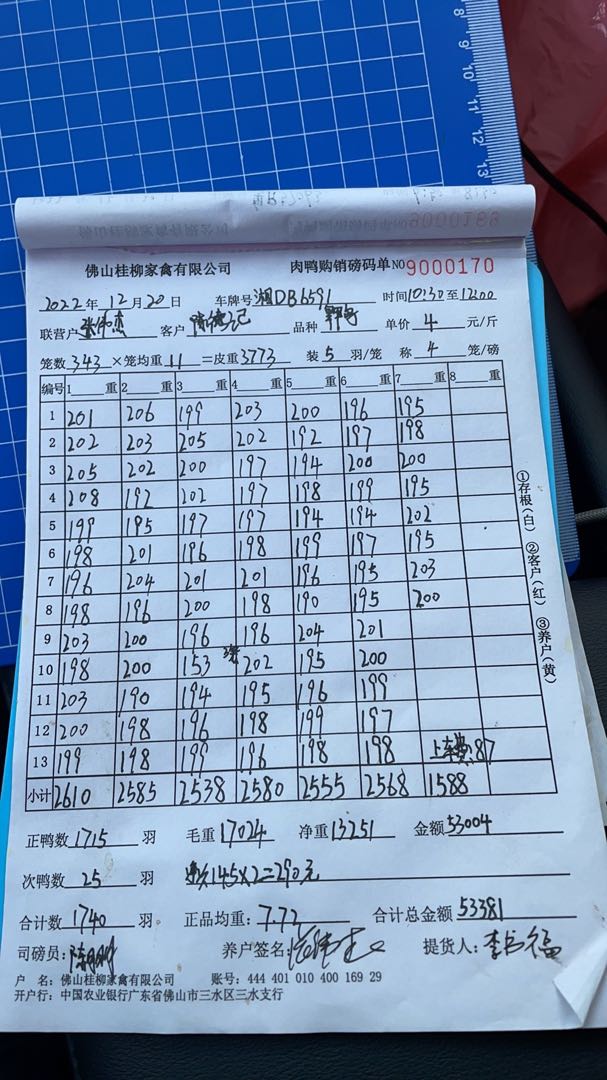 佛山桂柳家禽有限公司 肉鸭购销磅码单 NO 9000170
2022年 12月20日 车牌号 湘DB6591 时间 10:30至12:00
联营户 客户 品种 单价 4 元/斤
笼数 343 ×笼均重 11 =皮重 3773 装 5 羽/笼 称 4 笼/磅
编号 1 重 2 重 3 重 4 重 5 重 6 重 7 重 8 重
1 201 206 199 203 200 196 195
2 202 203 205 202 192 197 198
3 205 202 200 197 194 200 200
4 208 192 202 197 198 199 195
5 199 195 197 197 194 194 202
6 198 201 196 198 199 197 195
7 196 204 201 201 196 195 203
8 198 196 200 198 190 195 200
9 203 200 196 196 204 201
10 198 200 153 202 195 200
11 203 190 194 195 196 199
12 200 198 196 198 199 197
13 199 198 199 196 198 198 上车费:87
小计 2610 2585 2538 2580 2555 2568 1588
①存根(白) ②客户(红) ③养户(黄)
正鸭数 1715 羽 毛重 17024 净重 13251 金额 53004
次鸭数 25 羽 145×2=290元
合计数 1740 羽 正品均重: 7.72 合计总金额 53381
司磅员: 养户签名: 提货人:
户 名: 佛山桂柳家禽有限公司 账号: 444 401 010 400 169 29
开户行: 中国农业银行广东省佛山市三水区三水支行